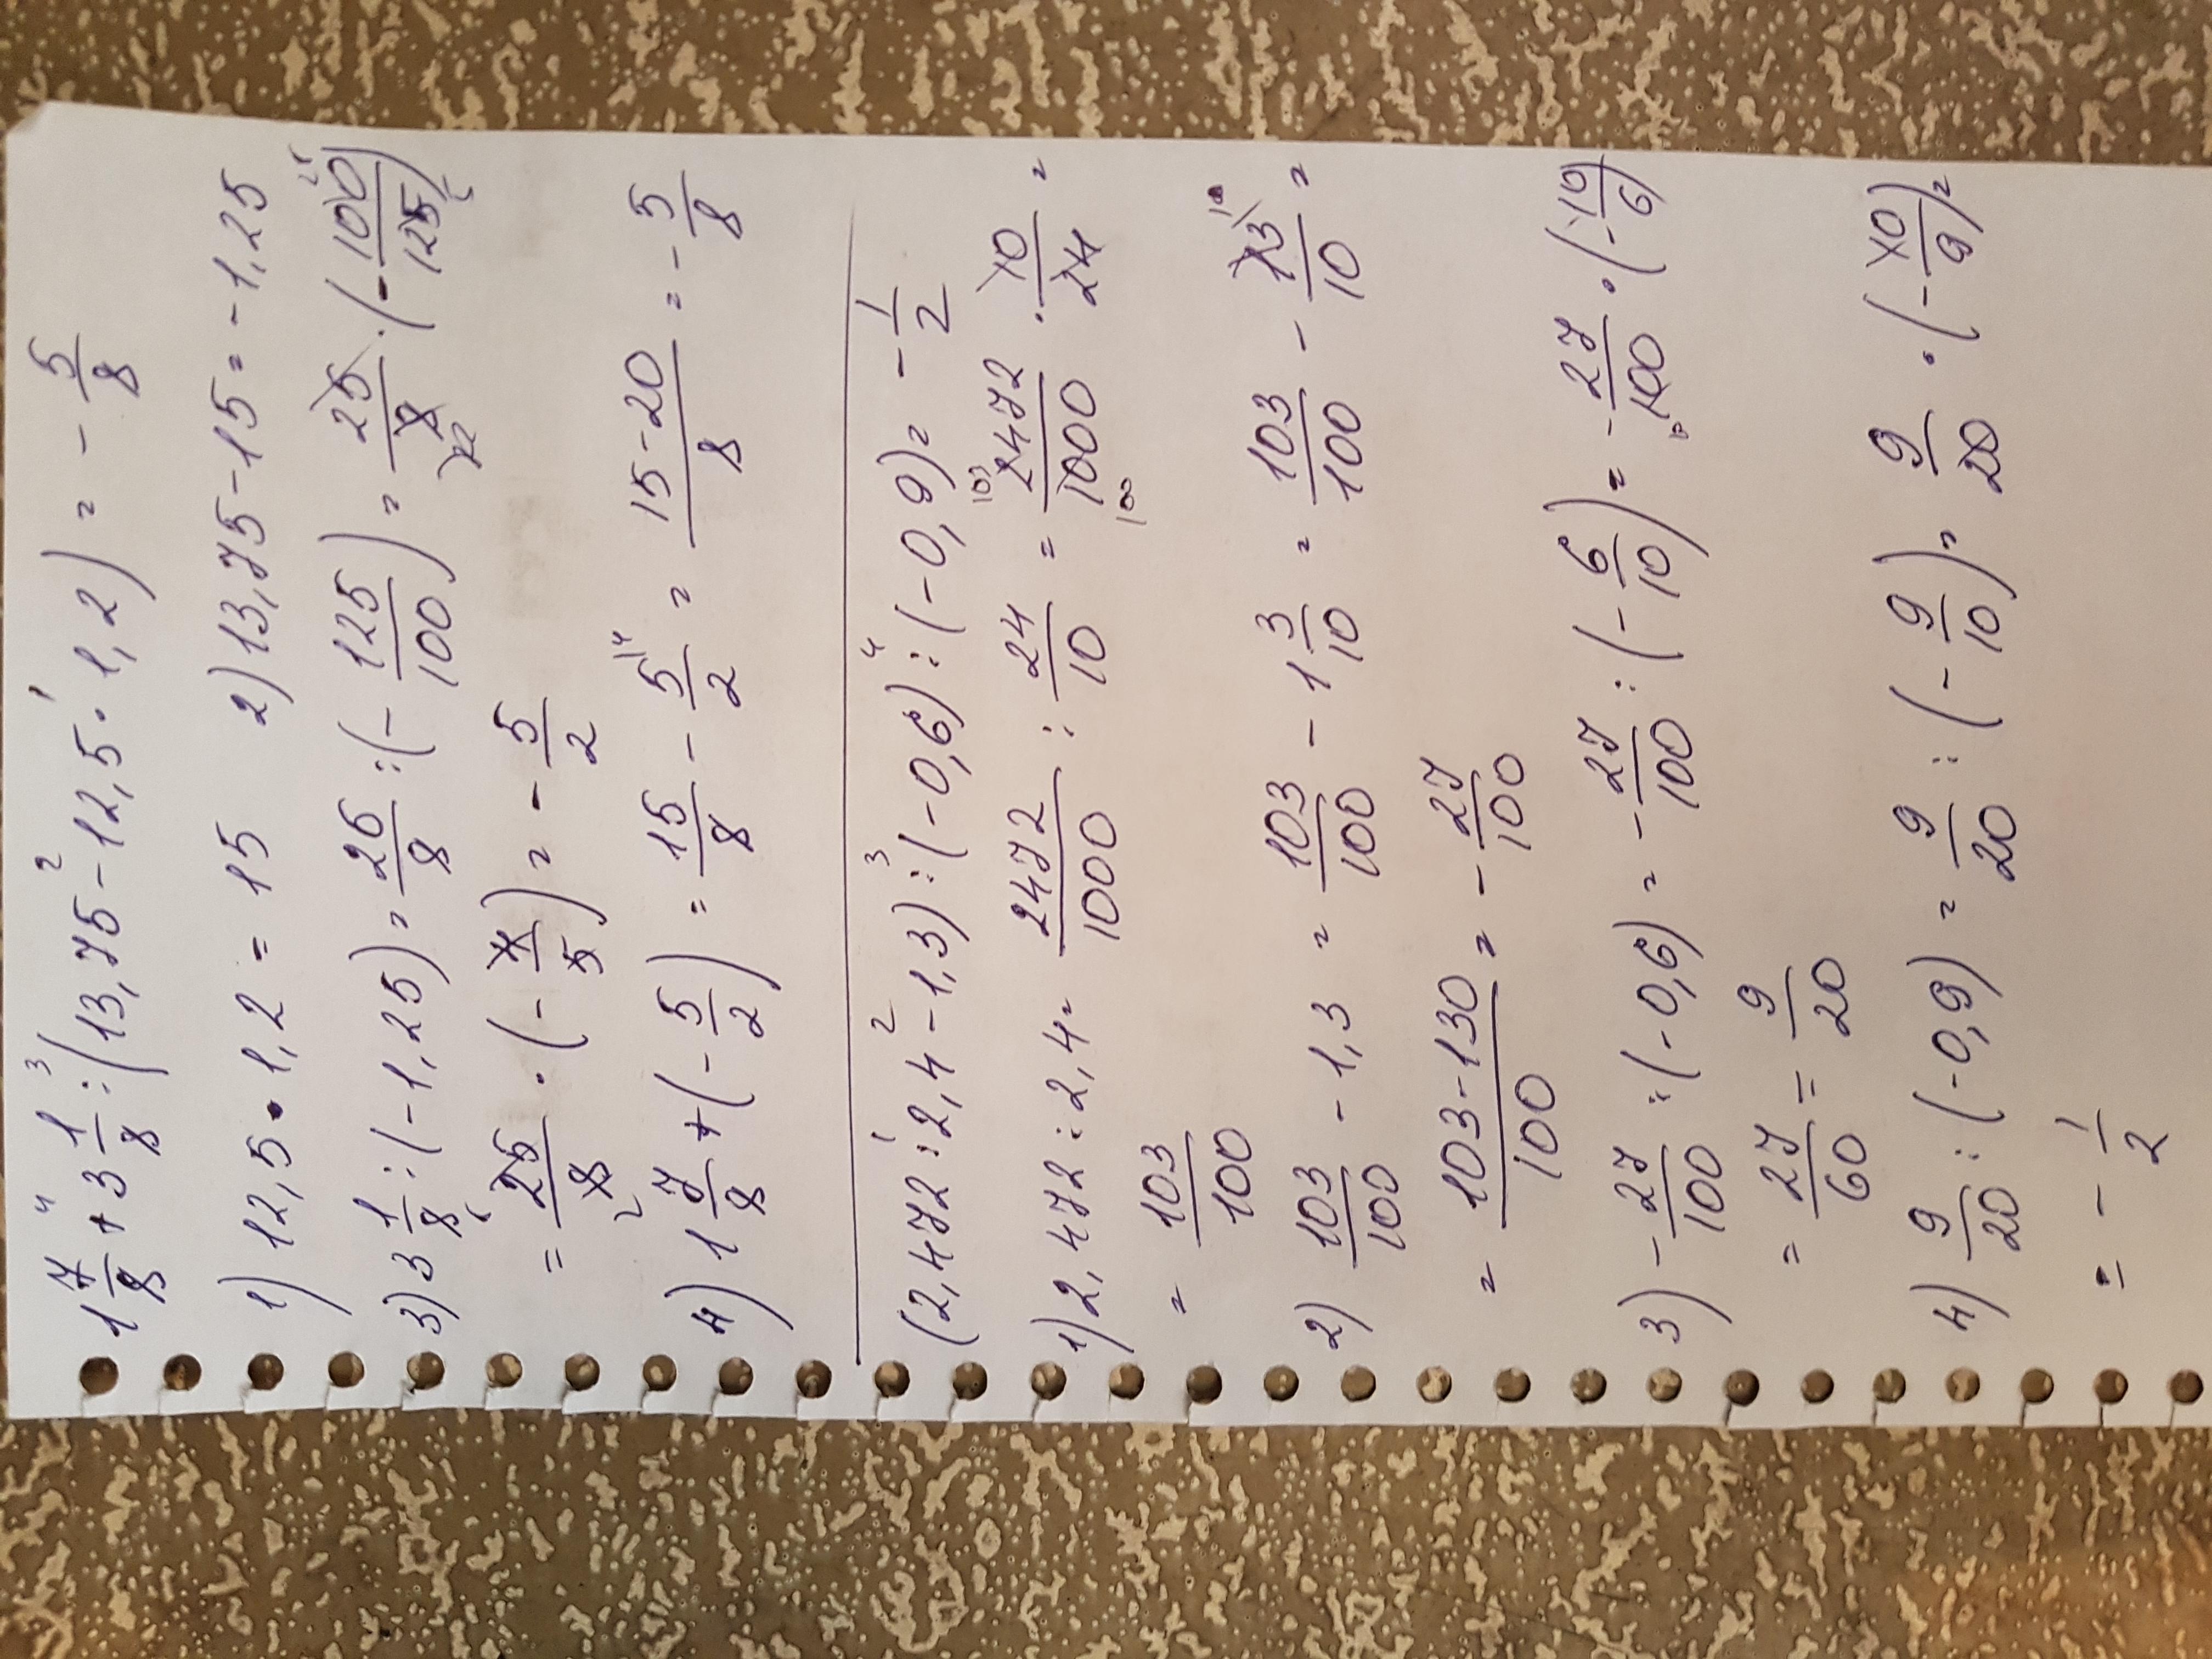 1 7/8 + 3 1/8 : (13,75 - 12,5 · 1,2) = - 5/8
1) 12,5 · 1,2 = 15 2) 13,75 - 15 = - 1,25
3) 3 1/8 : (-1,25) = 25/8 : (- 125/100) = 25/8 · (- 100/125)
= 25/8 · (- 4/5) = - 5/2
4) 1 7/8 + (- 5/2) = 15/8 - 5/2 = 15-20/8 = - 5/8
(2,472 : 2,4 - 1,3) : (-0,6) : (-0,9) = - 1/2
1) 2,472 : 2,4 = 2472/1000 : 24/10 = 2472/1000 · 10/24 =
= 103/100
2) 103/100 - 1,3 = 103/100 - 1 3/10 = 103/100 - 13/10 =
= 103-130/100 = - 27/100
3) - 27/100 : (-0,6) = - 27/100 : (- 6/10) = - 27/100 · (- 10/6)
= 27/60 = 9/20
4) 9/20 : (-0,9) = 9/20 : (- 9/10) = 9/20 · (- 10/9) =
= - 1/2